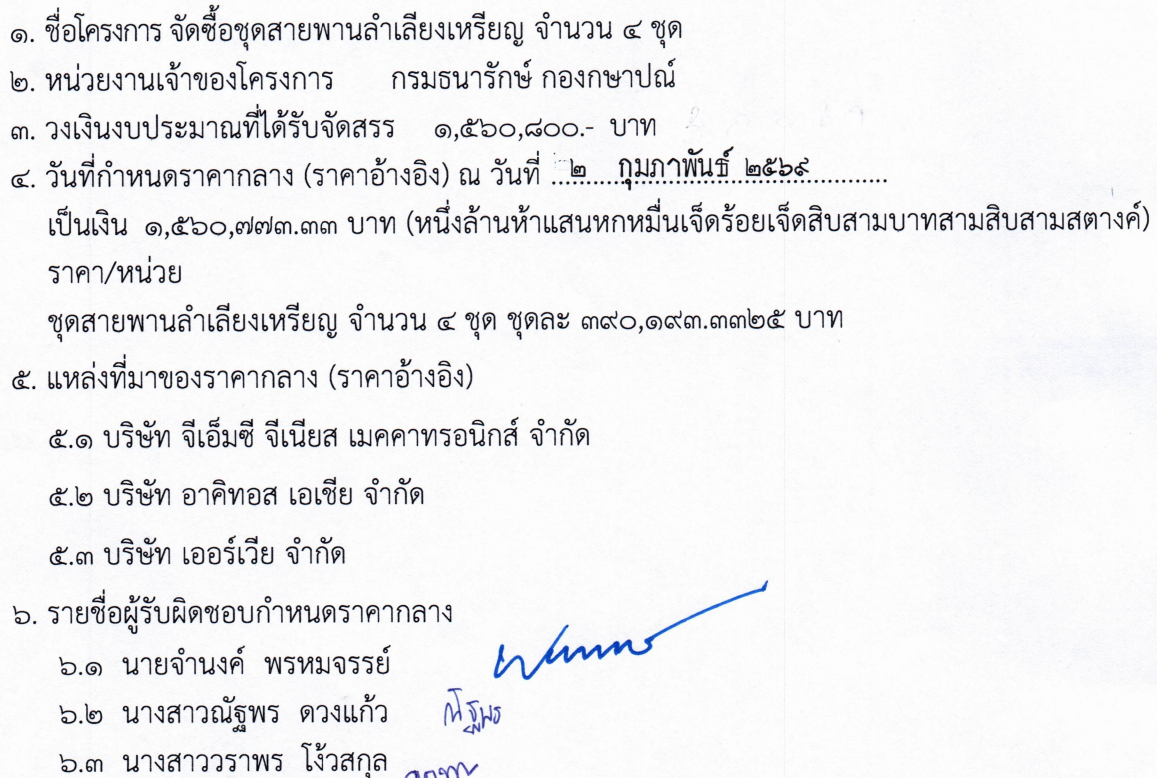 ๑. ชื่อโครงการ จัดซื้อชุดสายพานลำเลียงเหรียญ จำนวน ๔ ชุด
๒. หน่วยงานเจ้าของโครงการ กรมธนารักษ์ กองกษาปณ์
๓. วงเงินงบประมาณที่ได้รับจัดสรร ๑,๕๖๐,๘๐๐.- บาท
๔. วันที่กำหนดราคากลาง (ราคาอ้างอิง) ณ วันที่ ๒ กุมภาพันธ์ ๒๕๖๙
เป็นเงิน ๑,๕๖๐,๗๗๓.๓๓ บาท (หนึ่งล้านห้าแสนหกหมื่นเจ็ดร้อยเจ็ดสิบสามบาทสามสิบสามสตางค์)
ราคา/หน่วย
ชุดสายพานลำเลียงเหรียญ จำนวน ๔ ชุด ชุดละ ๓๙๐,๑๙๓.๓๓๒๕ บาท
๕. แหล่งที่มาของราคากลาง (ราคาอ้างอิง)
๕.๑ บริษัท จีเอ็มซี จีเนียส เมคคาทรอนิกส์ จำกัด
๕.๒ บริษัท อาคิทอส เอเชีย จำกัด
๕.๓ บริษัท เออร์เวีย จำกัด
๖. รายชื่อผู้รับผิดชอบกำหนดราคากลาง
๖.๑ นายจำนงค์ พรหมจรรย์
๖.๒ นางสาวณัฐพร ดวงแก้ว ณัฐพร
๖.๓ นางสาววราพร โง้วสกุล